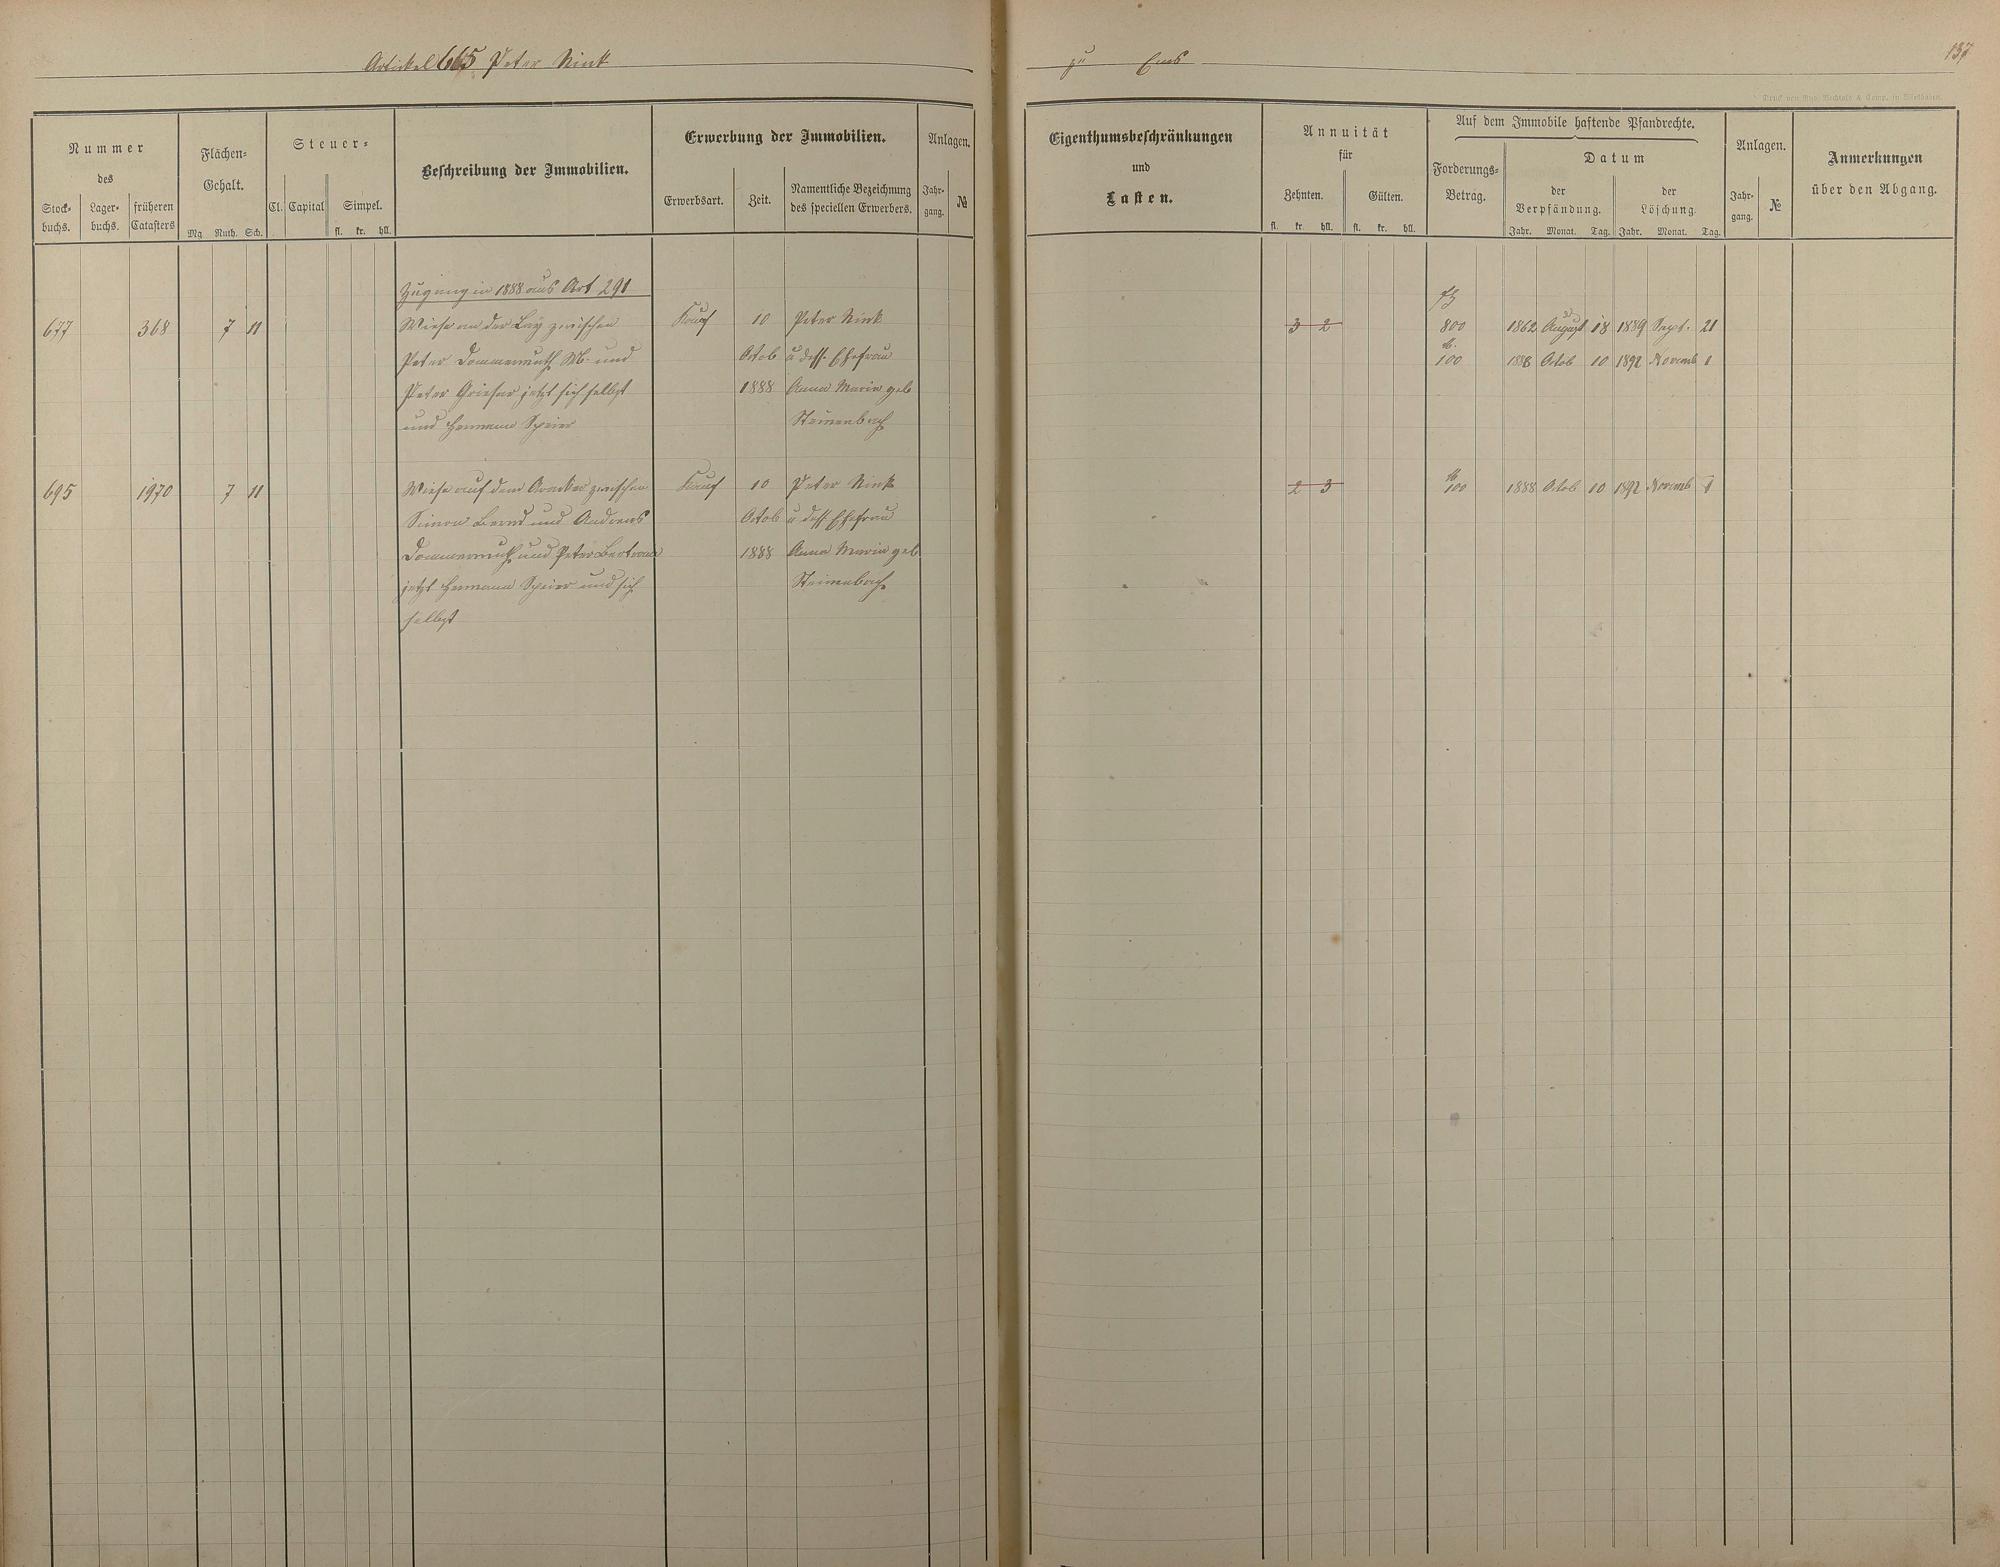 Artickel 665 Peter Nink
zu Ems
137
Druck von Rud. Bechtold & Comp. in Wiesbaden.
Nummer
des
Stock-
buchs.
Lager-
buchs.
früheren
Catasters
Flächen-
Gehalt.
Mg Ruth. Sch.
Steuer-
Cl. Capital Simpel.
fl. kr. hll.
Beschreibung der Immobilien.
Erwerbung der Immobilien.
Erwerbsart. Zeit.
Namentliche Bezeichnung
des speciellen Erwerbers.
Anlagen.
Jahr-
gang.
№
Eigenthumsbeschränkungen
und
Lasten.
Annuität
für
Zehnten. Gülten.
fl. kr. hll. fl. kr. hll.
Auf dem Immobile haftende Pfandrechte.
Forderungs-
Betrag.
Datum
der
Verpfändung.
der
Löschung.
Jahr. Monat. Tag. Jahr. Monat. Tag.
Anlagen.
Jahr-
gang.
№
Anmerkungen
über den Abgang.
Zugang in 1888 aus Art 291
677 368 7 11 Wiese an der Lay zwischen Kauf 10 Peter Nink 3 2 800 1862 August 18 1889 Sept. 21
Peter Dommermuth M. und Octob u dess. Ehefrau 100 1888 Octob 10 1892 Novemb 1
Peter Grieser jetzt sich selbst 1888 Anna Maria geb
und Hermann Speier Steinenbach
695 1970 7 11 Wiese auf dem zwischen Kauf 10 Peter Nink 2 3 100 1888 Octob 10 1892 Novemb 1
Simon Bernd und Andreas Octob u dess. Ehefrau
Dommermuth und Peter Bertram 1888 Anna Maria geb
jetzt Hermann Speier und sich Steinenbach
selbst